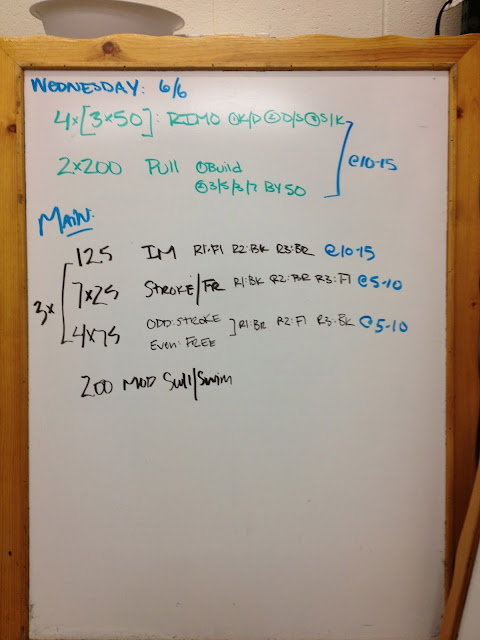 WEDNESDAY: 6/6
4x[3x50]: RIMO ①K/D ②D/S ③S/K
2x200 Pull ①Build
②3/5/3/7 BY 50
@10-15
MAIN:
3x
125 IM R1:Fl R2:BK R3:BR @10-15
7x25 STROKE/FR R1:BK R2:BR R3:Fl @5-10
4x75 ODD:STROKE
Even: FREE
R1:BR R2:Fl R3:BK @5-10
200 MOD Scull/Swim